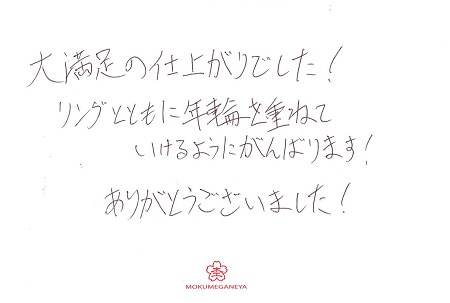 大満足の仕上がりでした！
リングとともに年輪を重ねて
いけるようにがんばります！
ありがとうございました！
MOKUMEGANEYA